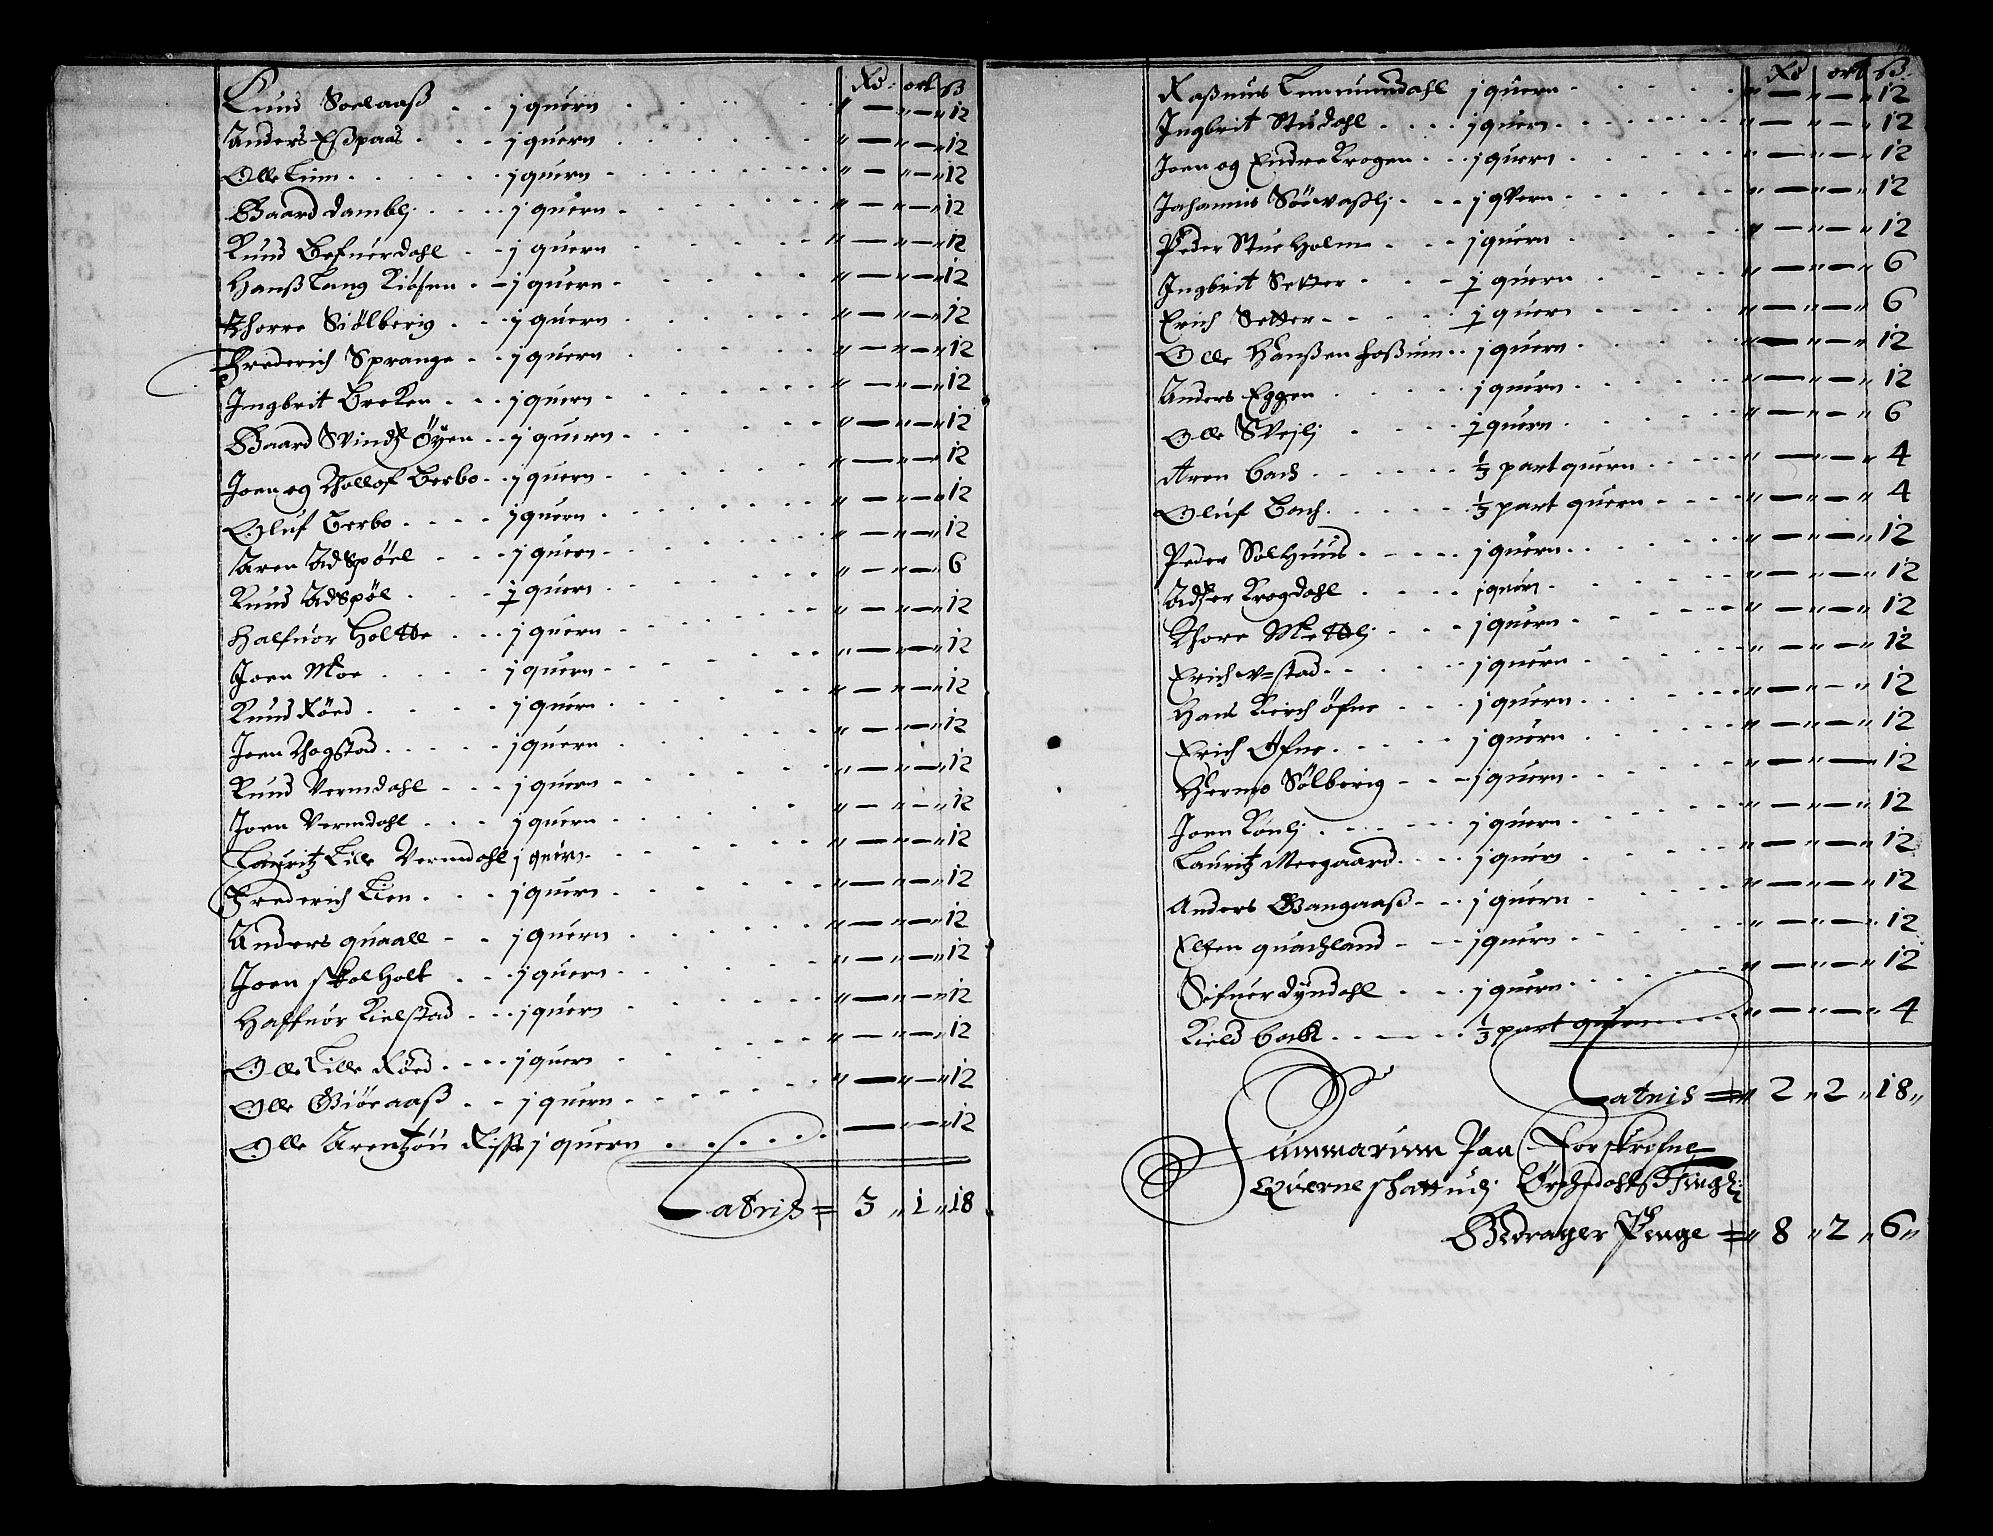 Rd: ort ß
Knud Soelaaß . . j quern . . . . " — " — " 12
Anders Eßpaas . . . j quern . . . . " — " — " 12
Olle Lim . . . . . j quern . . . . " — " — " 12
Baard Damblj . . . j quern . . . . " — " — " 12
Knud Refnerdahl . . j quern . . . . " — " — " 12
Hanß Lang Kiösen . . j quern . . . . " — " — " 12
Thorre Siölberig . . . j quern . . . . " — " — " 12
Frederich Sprange . . j quern . . . . " — " — " 12
Ingbrit Brecken . . . j quern . . . . " — " — " 12
Baard Svinds Øyen . . j quern . . . . " — " — " 12
Joen og Thollof Berbo . . j quern . . . . " — " — " 12
Oluf Berbo . . . . j quern . . . . " — " — " 12
Aren Adspöel . . . j quern . . . . " — " — " 12
Knud Adspöl . . . . ½ quern . . . . " — " — " 6
Halfuor Holtte . . . j quern . . . . " — " — " 12
Joen Moe . . . . j quern . . . . " — " — " 12
Knud Röed . . . . . j quern . . . . " — " — " 12
Joen Thogstad . . . . . j quern . . . . " — " — " 12
Knud Vermdahl . . . j quern . . . . " — " — " 12
Joen Vermdahl . . . j quern . . . . " — " — " 12
Lauritz Lille Vermdahl j quern . . . . " — " — " 12
Frederich Lien . . . j quern . . . . " — " — " 12
Anders quaall . . j quern . . . . " — " — " 12
Joen Skolholt . . . j quern . . . . " — " — " 12
Haffuor Kielstad . . . j quern . . . . " — " — " 12
Olle Lille Röed . . . . j quern . . . . " — " — " 12
Olle Giöraaß . . . j quern . . . . " — " — " 12
Olle Arentzön Risse j quern . . . . " — " — " 12
Lateris = 3 " 1 " 18
Rd ort ß.
Raßmus Lemmundahl j quern . . . . " — " — " 12
Ingbrit Studahl . . . . j quern . . . . " — " — " 12
Joen og Endre Krogen . . . j quern . . . . " — " — " 12
Johannis Söevaßlj . . . j qvern . . . " — " — " 12
Peder Stueholm . . . j quern . . . . " — " — " 12
Ingbrit Setter . . . ½ quern . . . . " — " — " 6
Erich Setter . . . . ½ quern . . . . " — " — " 6
Olle Hanßen Foßum . . j quern . . . . " — " — " 12
Anders Eggen . . . . j quern . . . . " — " — " 12
Olle Svejlj . . . . ½ quern . . . . " — " — " 6
Aren Bach . . . . . . ⅓ part quern . . . . " — " — " 4
Oluf Bach . . . . . . ⅓ part quern . . . . " — " — " 4
Peder Solhuus . . . . . j quern . . . . " — " — " 12
Adser Krogdahl . . . . j quern . . . . " — " — " 12
Thore Mettlj . . . j quern . . . . " — " — " 12
Erich v=stad . . . . . j quern . . . . " — " — " 12
Hans Kirch öfne . . . j quern . . . . " — " — " 12
Erich Öfne . . . . . j quern . . . . " — " — " 12
Hermo Sölberig . . . j quern . . . . " — " — " 12
Joen Rönlj . . . . . . j quern . . . . " — " — " 12
Lauritz Meegaard . . . . j quern . . . . " — " — " 12
Anders Gangaaß . . . j quern . . . . " — " — " 12
Ellen quachland . . . j quern . . . . " — " — " 12
Sifuer Dyndahl . . . j quern . . . . " — " — " 12
Kield Back . . . . . . ⅓ part quern . . . . " — " — " 4
Lateris = " 2 " 2 " 18 "
Summarum Paa Forskrefne
Querne schatt udj Örchedahlß Tingl:
Bedrager Penge = " 8 " 2 " 6 "